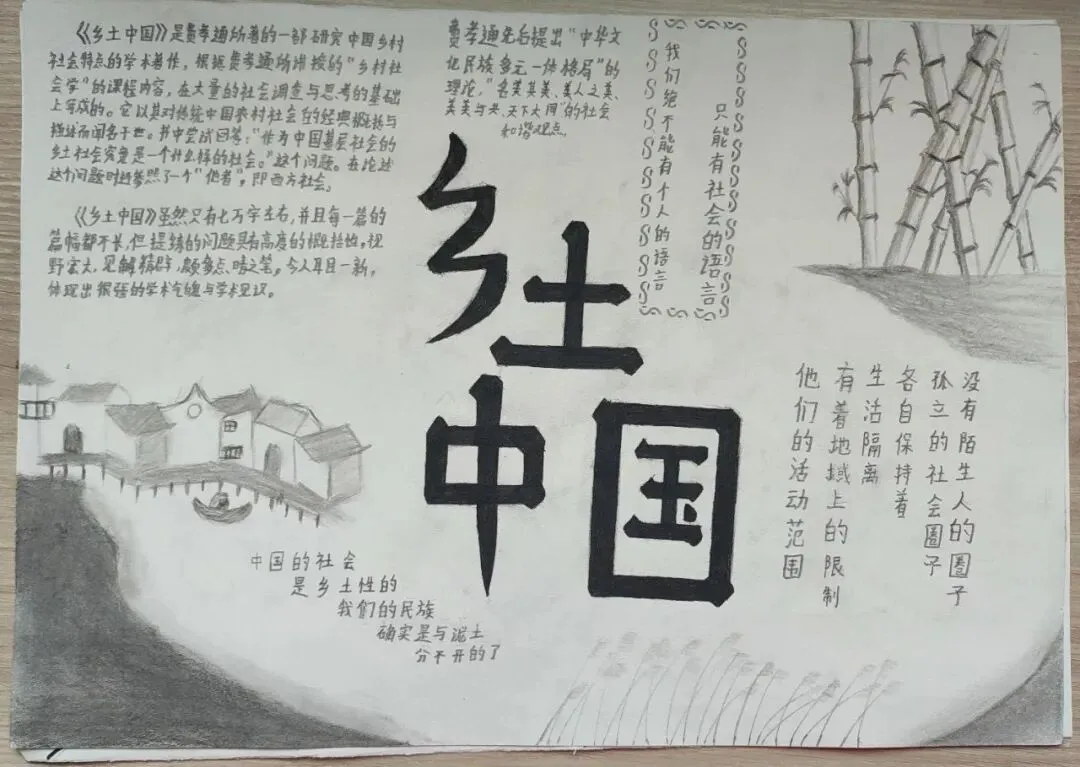 《乡土中国》是费孝通所著的一部研究中国乡村
社会特点的学术著作，根据费孝通所讲授的“乡村社
会学”的课程内容，在大量的社会调查与思考的基础
上写成的。它以其对传统中国农村社会的经典概括与
描述而闻名于世。书中尝试回答：“作为中国基层社会的
乡土社会究竟是一个什么样的社会。”这个问题。在论述
这个问题时还参照了一个“他者”，即西方社会。
《乡土中国》虽然只有七万字左右，并且每一篇的
篇幅都不长，但提练的问题具有高度的概括性。视
野宏大，见解精辟，颇多点睛之笔，令人耳目一新，
体现出很强的学术气魄与学术见识。
费孝通先后提出“中华文
化民族多元一体格局”的
理论，“各美其美、美人之美、
美美与共、天下大同”的社会
和谐观点
只能有社会的语言
我们绝不能有个人的语言
乡土
中国
没有陌生人的圈子
孤立的社会圈子
各自保持着
生活隔离
有着地域上的限制
他们的活动范围
中国的社会
是乡土性的
我们的民族
确实是与泥土
分不开的了